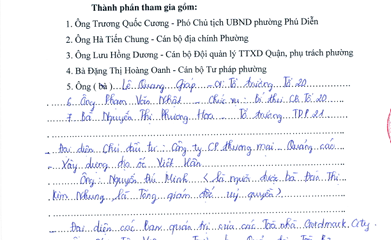 Thành phần tham gia gồm:
1. Ông Trương Quốc Cương - Phó Chủ tịch UBND phường Phú Diễn
2. Ông Hà Tiến Chung - Cán bộ địa chính Phường
3. Ông Lưu Hồng Dương - Cán bộ Đội quản lý TTXD Quận, phụ trách phường
4. Bà Đặng Thị Hoàng Oanh - Cán bộ Tư pháp phường
5. Ông ( bà ) Lê Quang Tổ trưởng Tổ 20
6. Ông Phạm Văn Nhật Chức vụ: bí thư CB Tổ 20
7. Bà Nguyễn Thị Phương Hoa Tổ trưởng TDP 21
Đại diện Chủ đầu tư: Công ty CP thương mại Quảng cáo
Xây dựng địa ốc Việt Hân
Ông: Nguyễn Minh ( là người được bà Thị
Kim Nhung là Tổng giám đốc uỷ quyền )
Đại diện các Ban quản trị của các Toà nhà Goldmark City.